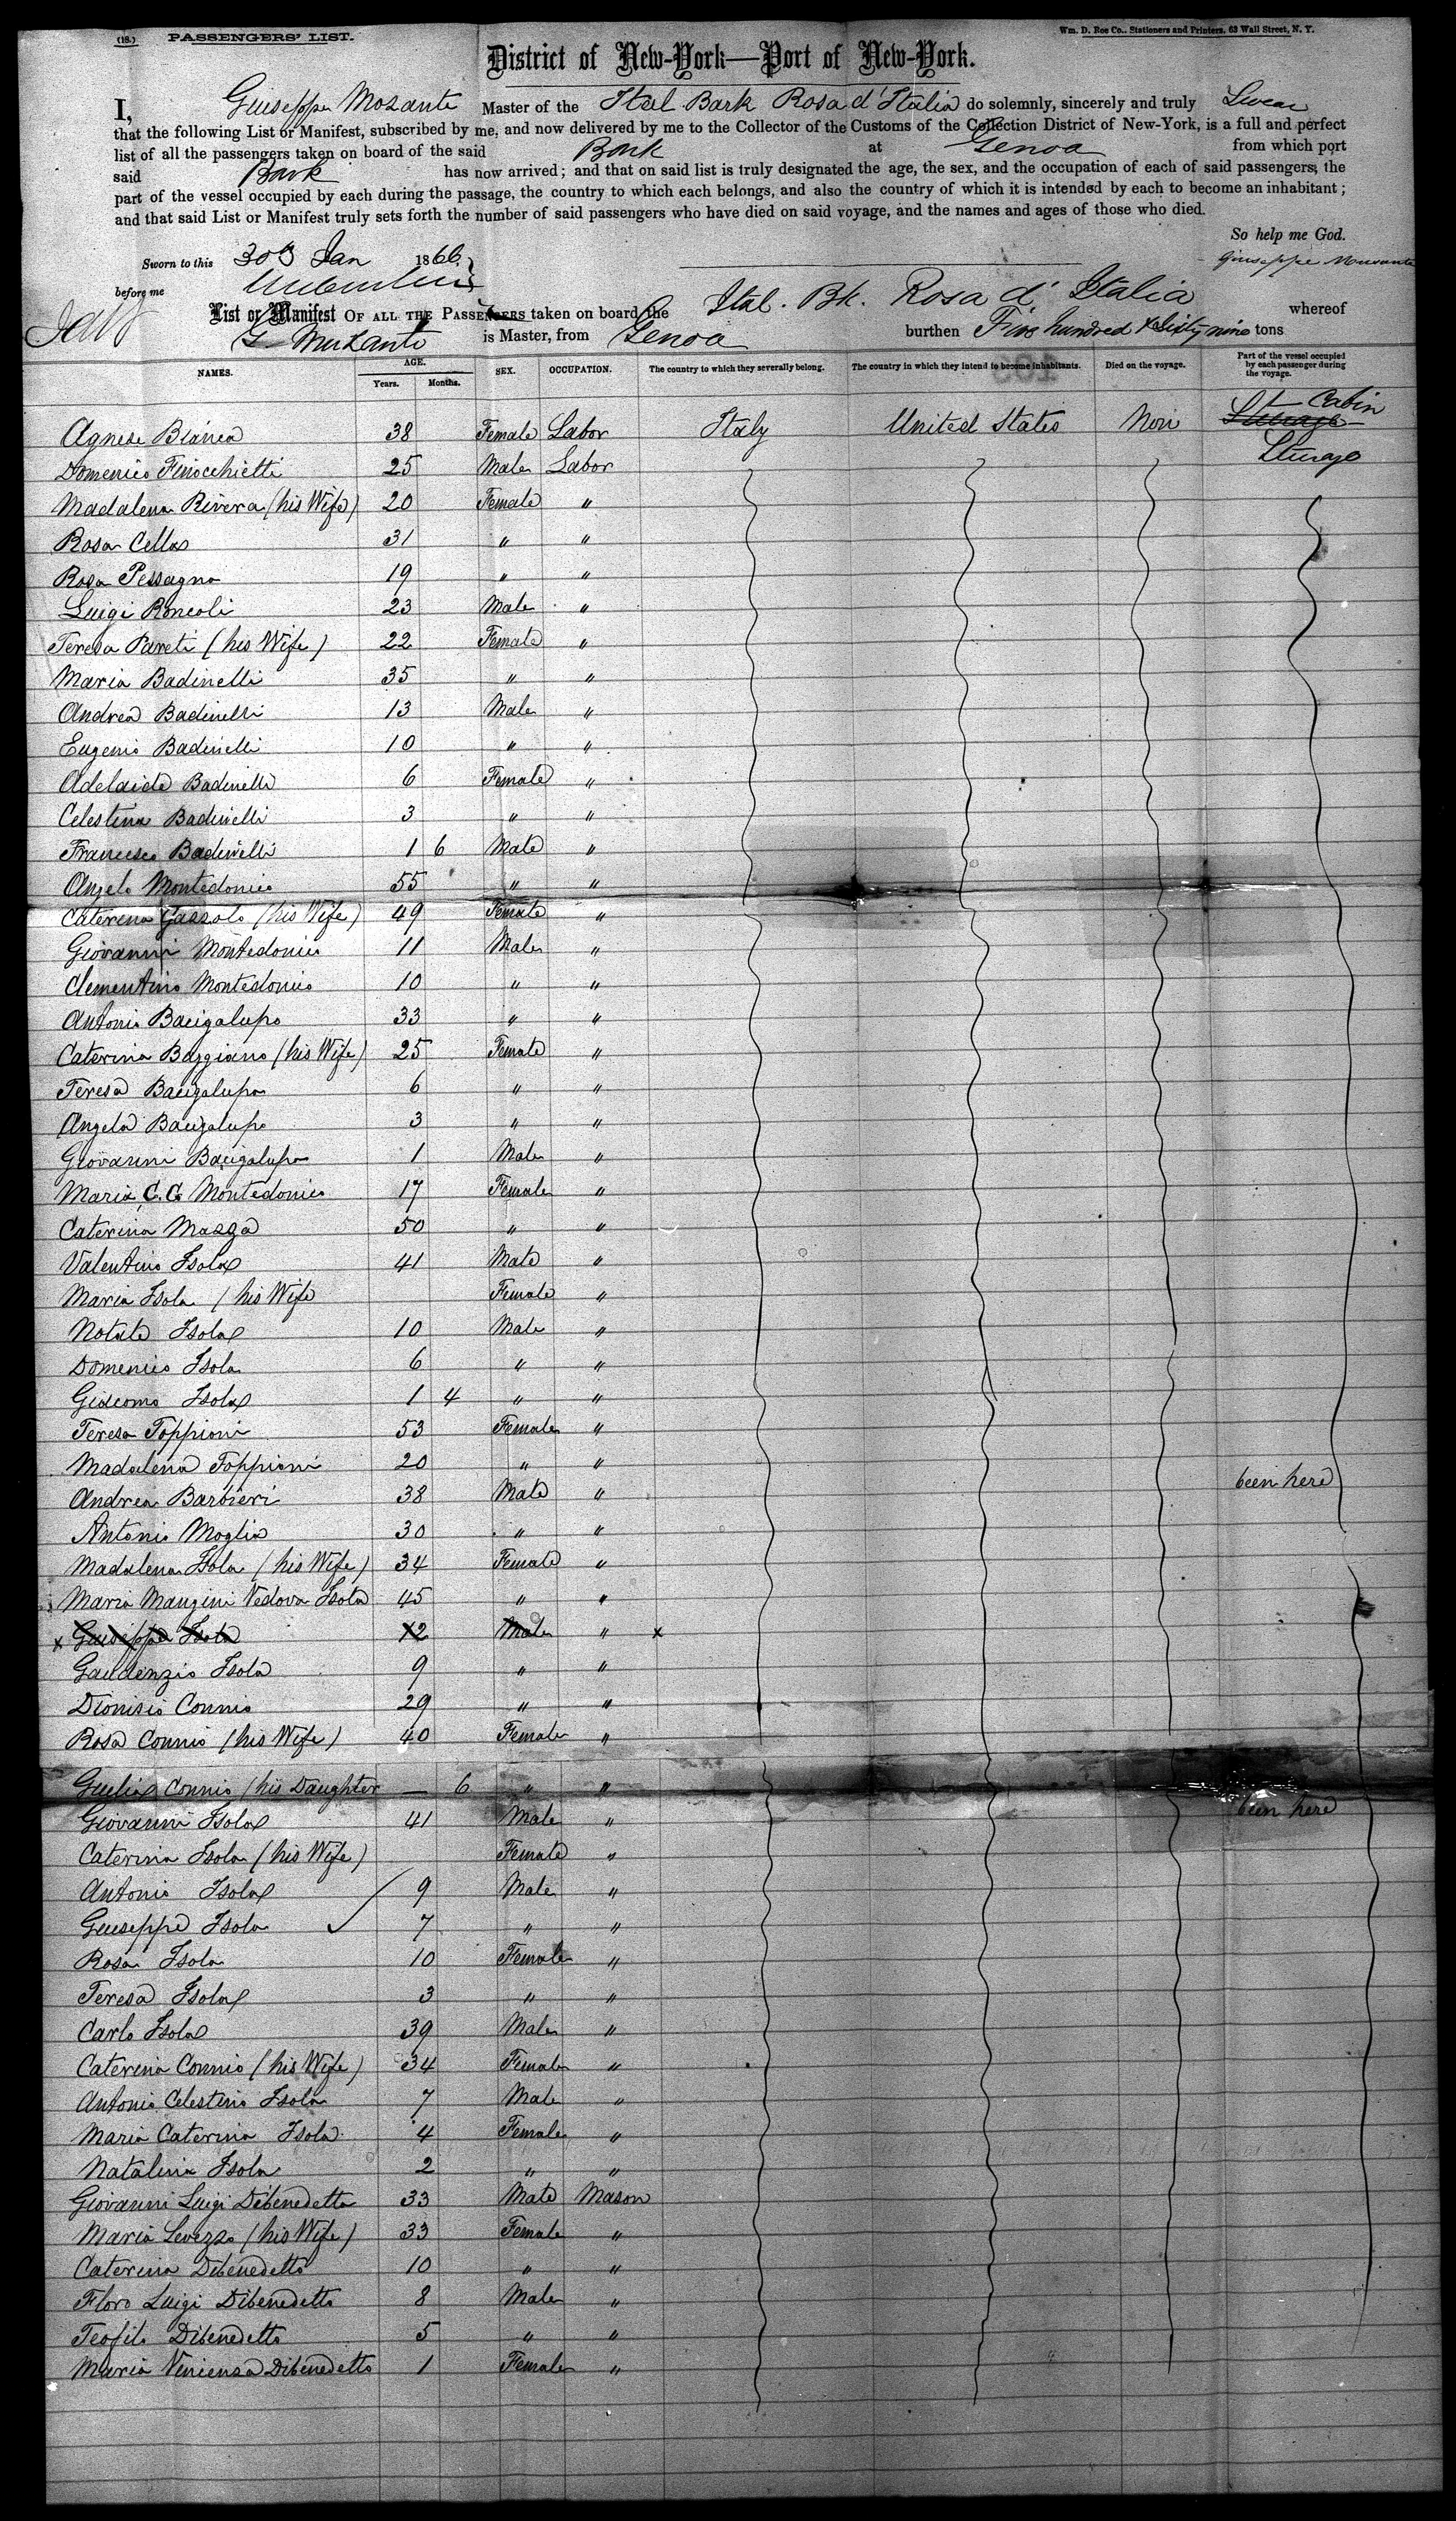 (18.) PASSENGERS' LIST.
Wm. D. Roe Co., Stationers and Printers, 63 Wall Street, N. Y.
District of New-York—Port of New-York.
I, Giuseppe Mozante Master of the Ital Bark Rosa d'Italia do solemnly, sincerely and truly Swear
that the following List or Manifest, subscribed by me, and now delivered by me to the Collector of the Customs of the Collection District of New-York, is a full and perfect
list of all the passengers taken on board of the said Bark at Genoa from which port
said Bark has now arrived; and that on said list is truly designated the age, the sex, and the occupation of each of said passengers, the
part of the vessel occupied by each during the passage, the country to which each belongs, and also the country of which it is intended by each to become an inhabitant;
and that said List or Manifest truly sets forth the number of said passengers who have died on said voyage, and the names and ages of those who died.
So help me God.
Sworn to this 30 Jan 1866
Giuseppe Musante
before me
List or Manifest OF ALL THE PASSENGERS taken on board the Ital. Bk. Rosa d' Italia whereof
G. Muzante is Master, from Genoa burthen Five hundred & Sixty nine tons
NAMES. AGE. Years. Months. SEX. OCCUPATION. The country to which they severally belong. The country in which they intend to become inhabitants. Died on the voyage. Part of the vessel occupied by each passenger during the voyage.
Agnese Bianca 38 Female Labor Italy United States Non Steerage Cabin
Domenico Finocchietti 25 Male Labor Sturage
Madalena Rivera (his Wife) 20 Female "
Rosa Cella 31 " "
Rosa Pessagno 19 " "
Luigi Roncoli 23 Male "
Teresa Pareti (his Wife) 22 Female "
Maria Badinelli 35 " "
Andrea Badinelli 13 Male "
Eugenio Badinelli 10 " "
Adelaide Badinelli 6 Female "
Celestina Badinelli 3 " "
Francesco Badinelli 1 6 Male "
Angelo Montedonico 55 " "
Caterina Gazzolo (his Wife) 49 Female "
Giovanni Montedonico 11 Male "
Clementino Montedonico 10 " "
Antonio Bacigalupo 33 " "
Caterina Baggiano (his Wife) 25 Female "
Teresa Bacigalupo 6 " "
Angela Bacigalupo 3 " "
Giovanni Bacigalupo 1 Male "
Maria C. C. Montedonico 17 Female "
Caterina Mazza 50 " "
Valentino Isola 41 Male "
Maria Isola (his Wife Female "
Notale Isola 10 Male "
Domenico Isola 6 " "
Giacomo Isola 1 4 " "
Teresa Toppioni 53 Female "
Madalena Toppioni 20 " "
Andrea Barbieri 38 Male " been here
Antonio Moglia 30 " "
Madalena Isola (his Wife) 34 Female "
Maria Mangini Vedova Isola 45 " "
x Giuseppe Isola 12 Male " x
Gaudenzio Isola 9 " "
Dionisio Connio 29 " "
Rosa Connio (his Wife) 40 Female "
Giulia Connio (his Daughter — 6 " "
Giovanni Isola 41 Male " been here
Caterina Isola (his Wife) Female "
Antonio Isola 9 Male "
Giuseppe Isola 7 " "
Rosa Isola 10 Female "
Teresa Isola 3 " "
Carlo Isola 39 Male "
Caterina Connio (his Wife) 34 Female "
Antonio Celestino Isola 7 Male "
Maria Caterina Isola 4 Female "
Natalina Isola 2 " "
Giovanni Luigi Dibenedetto 33 Male Mason
Maria Levezzo (his Wife) 33 Female "
Caterina Dibenedetto 10 " "
Floro Luigi Dibenedetto 8 Male "
Teofilo Dibenedetto 5 " "
Maria Dibenedetto 1 Female "